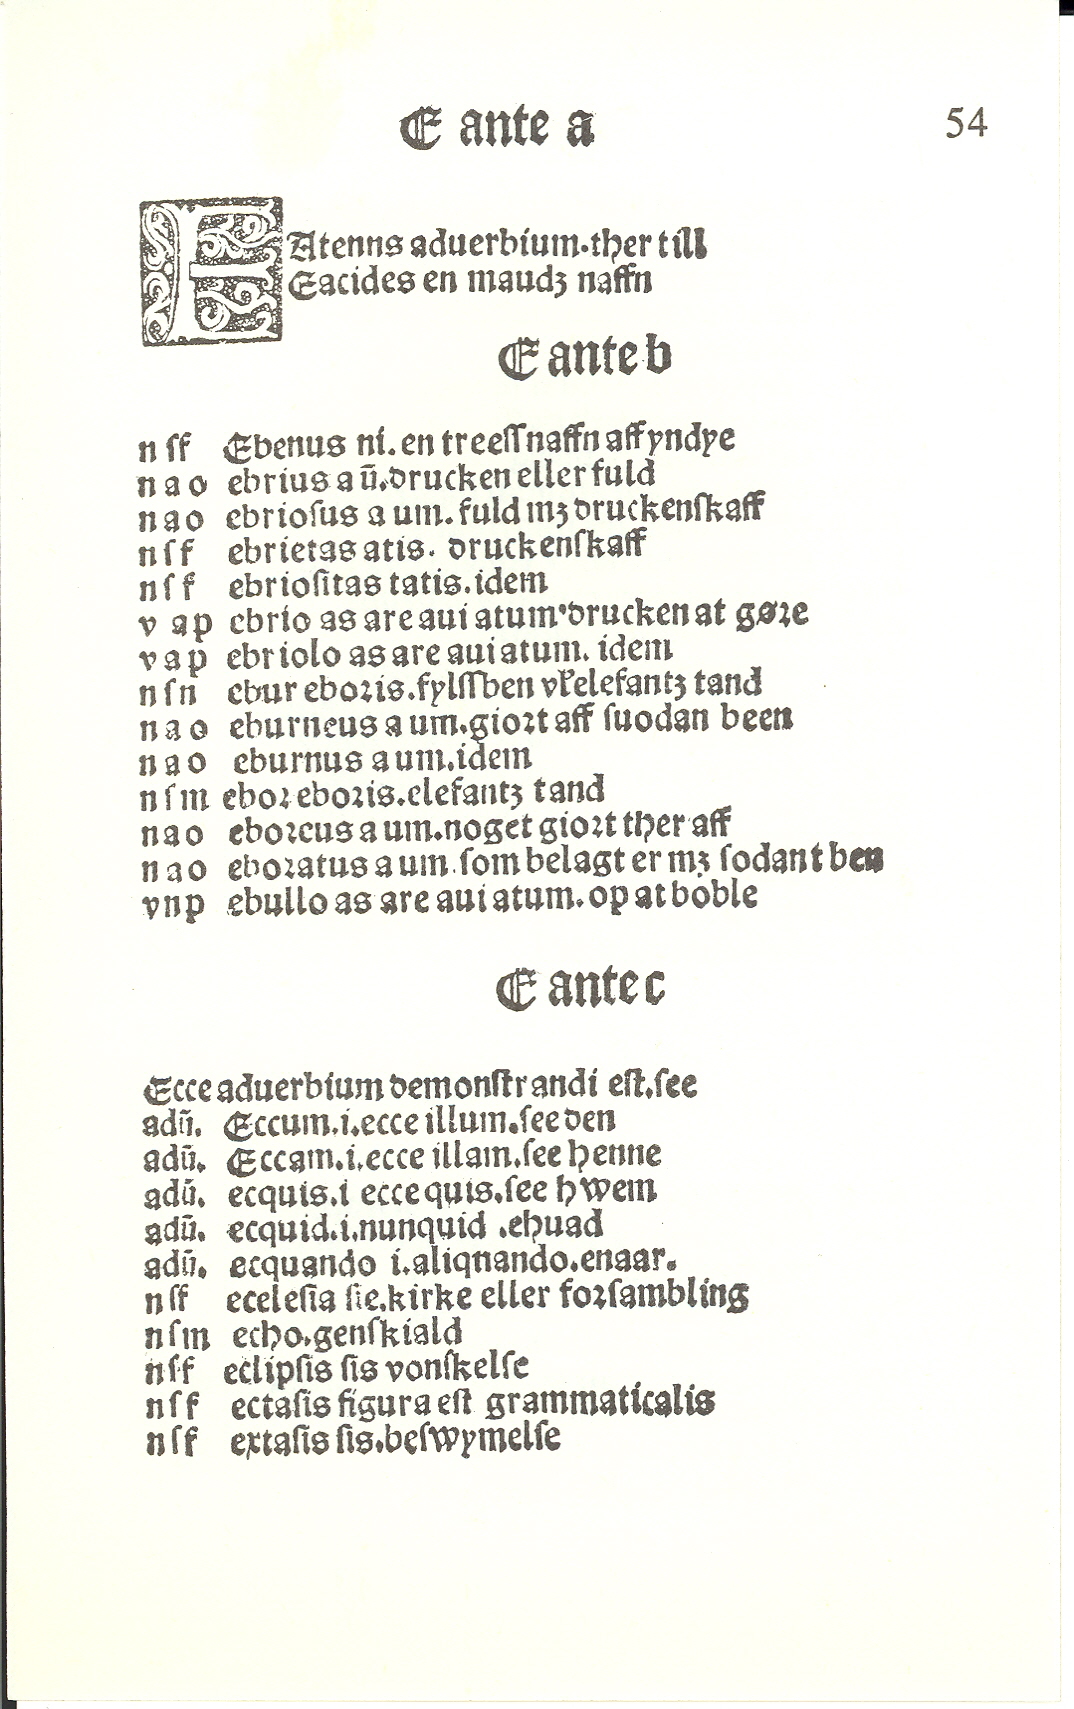 E ante a
54
EAtenns aduerbium.ther till
Eacides en maudꝫ naffn
E ante b
n ſf Ebenus ni. en treeſſ naffn aff yndye
n a o ebrius a ū.drucken eller fuld
n a o ebrioſus a um. fuld mꝫ druckenſkaff
n ſ f ebrietas atis. druckenſkaff
n ſ f ebrioſitas tatis.idem
v ap ebrio as are aui atum'drucken at gøꝛe
v a p ebriolo as are aui atum. idem
n ſ n ebur eboꝛis.fylſſben vꝉelefantꝫ tand
n a o eburneus a um.gioꝛt aff ſuodan been
n a o eburnus a um.idem
n ſ m eboꝛ eboꝛis.elefantꝫ tand
n a o eboꝛcus a um.noget gioꝛt ther aff
n a o eboꝛatus a um.ſom belagt er mꝫ ſodant ben
vnp ebullo as are aui atum.op at boble
E ante c
Ecce aduerbium demonſtrandi eſt.ſee
adū. Eccum.i.ecce illum.ſee den
adū. Eccam.i.ecce illam.ſee henne
adū. ecquis.i ecce quis.ſee hwem
adū. ecquid.i.nunquid .ehuad
adū. ecquando i.aliqnando.enaar.
n ſf eceleſia ſie.kirke eller foꝛſambling
n ſm echo.genſkiald
n ſf eclipſis ſis vonſkelſe
n ſ f ectaſis figura eſt grammaticalis
n ſf extaſis ſis.beſwymelſe